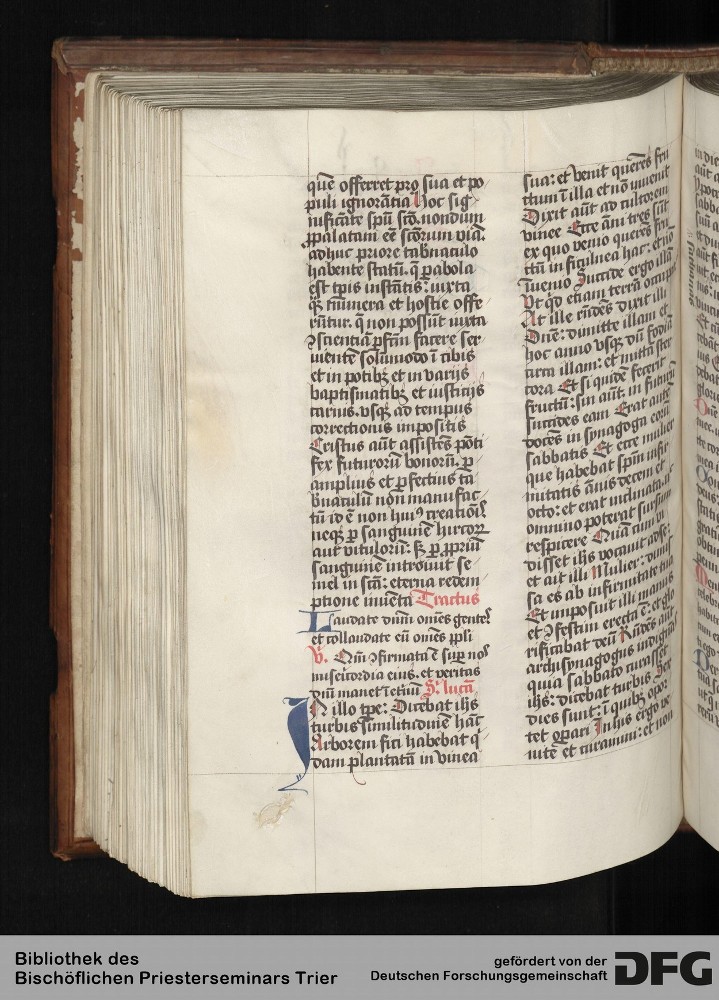 quē offerret pro sua et po
puli ignorātia Hoc sig
nificāte spū scō. nondum
ꝓpalatam eē scōrum viā.
adhuc priore tab̄naculo
habente statū. q̄ ꝑabola
est tp̄is instātis: iuxta
quā munera et hostie offe
rūtur. q̄ non possūt iuxta
ꝯscientiā ꝑfc̄m facere ser
uientē solūmodo ī cibis
et in potibꝫ et in varijs
baptismatibꝫ et iusticijs
carnis. vsqꝫ ad tempus
correctionis impositis
Cristus aūt assistēs pōti
fex futurorū bonorū. ꝑ
amplius et ꝑfectius ta
b̄naculū non manufac
tū id ē non huiꝰ creatiōis
neqꝫ ꝑ sanguinē hircoꝝ
aut vitulorū: sꝫ ꝑ ꝓpriū
sanguinē introiuit se
mel in scā: eterna redem
ptione inuēta Tractus
Laudate dn̄m om̄es gentes
et collaudate eū om̄es ppl̄i
V. Qm̄ ꝯfirmata ē suꝑ nos
misericordia eius. et veritas
dn̄i manet ī eternū S. lucā
In illo tpe: Dicebat ih̄s
turbis similitudinē hāc
Arborem fici habebat q
dam plantatā in vinea
sua: et venit querēs fru
ctum ī illa et nō inuenit
Dixit aūt ad cultorem
vinee Ecce āni tres sūt
ex quo venio querēs fru
ctū in ficulnea hac: et nō
īuenio Succide ergo illā
Vt qd etiam terrā occupat
At ille rn̄dēs dixit illi
Dn̄e: dimitte illam et
hoc anno vsqꝫ dū fodiā
circa illam: et mittā ster
cora Et si quidē fecerit
fructū: sin aūt: in futurū
succides eam Erat autē
docēs in synagoga eorū
sabbatis Et ecce mulier
que habebat spm̄ infir
mitatis ānis decem et
octo: et erat inclinata n
omnino poterat sursum
respicere Quā cum vi
disset ih̄s vocauit ad se:
et ait illi Mulier: dimis
sa es ab infirmitate tua
Et imposuit illi manus
et ꝯfestim erecta ē: et glo
rificabat deū Rn̄dēs aūt
archisynagogus indignās
quia sabbato curasset
ih̄s: dicebat turbis Sex
dies sunt: ī quibꝫ opor
tet oꝑari In his ergo ve
nite et curamini: et non
Bibliothek des
Bischöflichen Priesterseminars Trier
gefördert von der
Deutschen Forschungsgemeinschaft
DFG